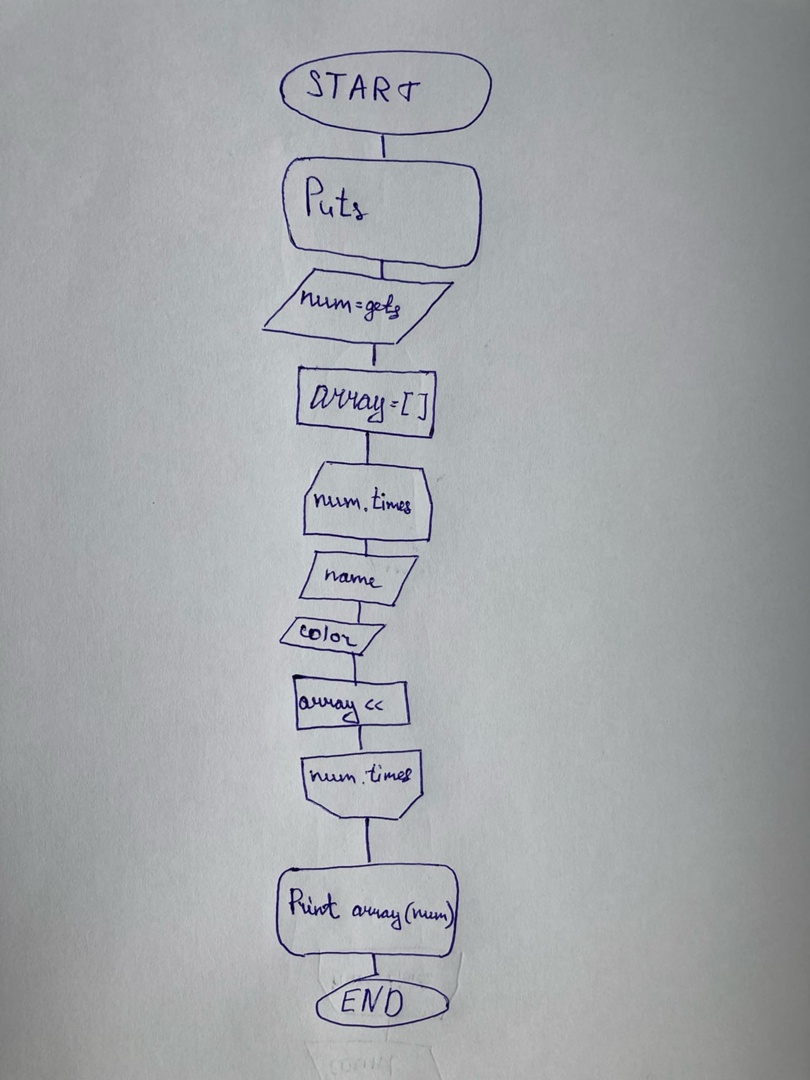 START
Puts
num=gets
array=[]
num.times
name
color
array <<
num.times
Print array(num)
END